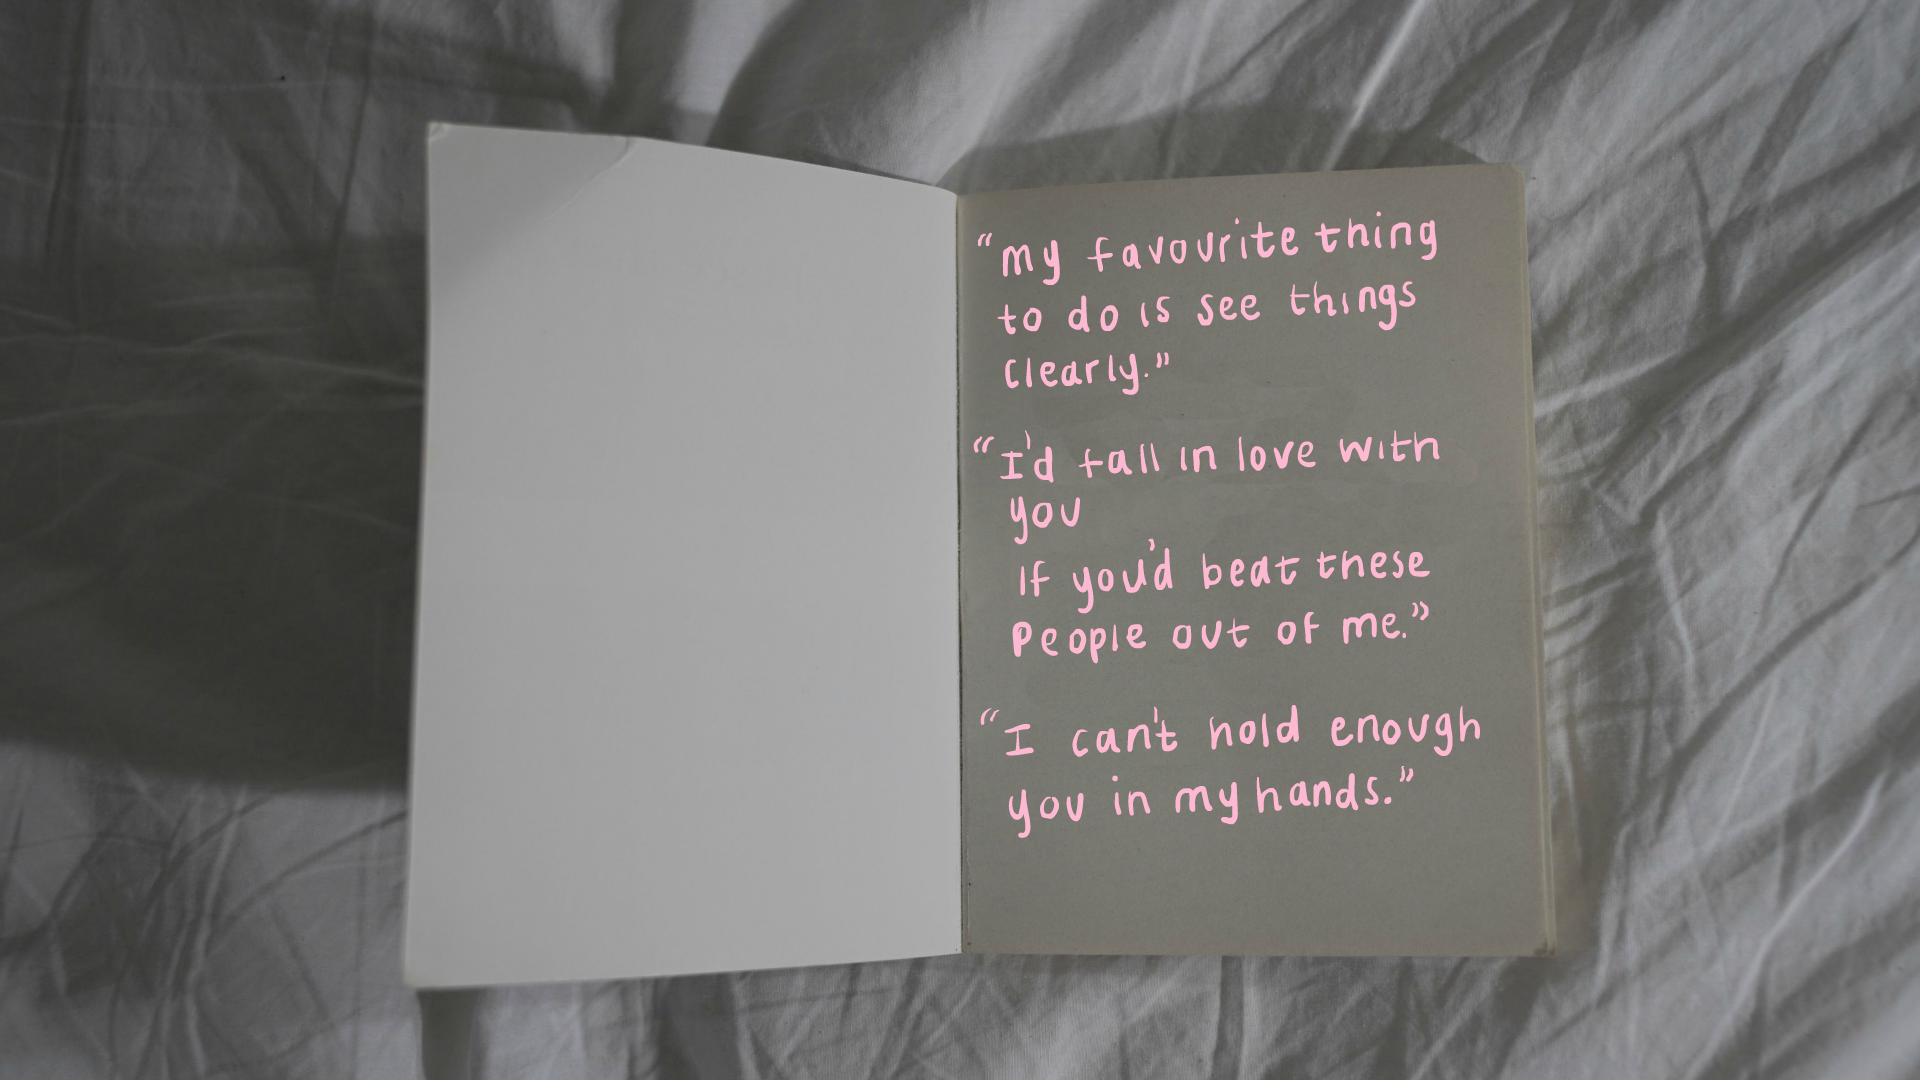 “my favourite thing
to do is see things
clearly.”
“I'd fall in love with
you
If you'd beat these
People out of me.”
“I can't hold enough
you in my hands.”